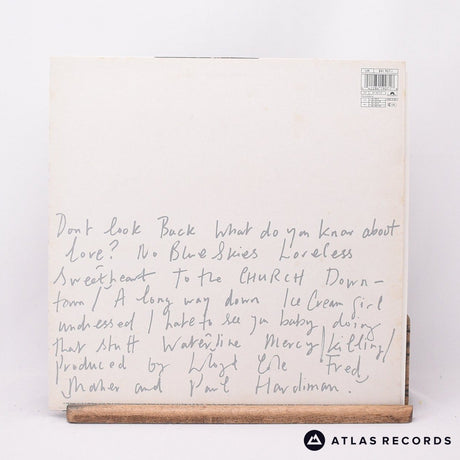 Dont look Back What do you know about
love? No Blue Skies Loveless
Sweetheart To the CHURCH Down-
town / A long way down Ice Cream girl
undressed / hate to see you baby doing
that stuff Waterline Mercy / Killing /
Produced by Lloyd Cole Fred
Maher and Paul Hardiman.
ATLAS RECORDS